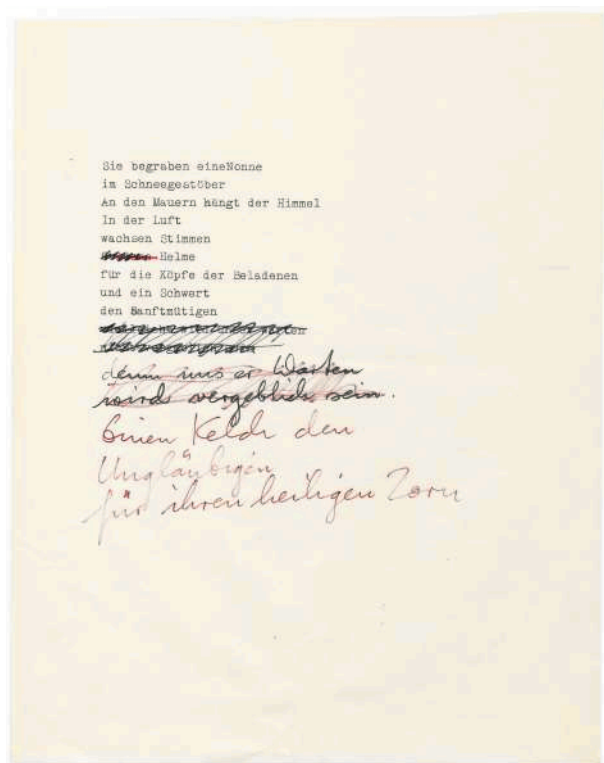 Sie begraben eineNonne
im Schneegestöber
An den Mauern hängt der Himmel
In der Luft
wachsen Stimmen
Helme
für die Köpfe der Beladenen
und ein Schwert
den Sanftmütigen
denn unser Warten
wird vergeblich sein.
Einen Kelch den
Ungläubigen
für ihren heiligen Zorn